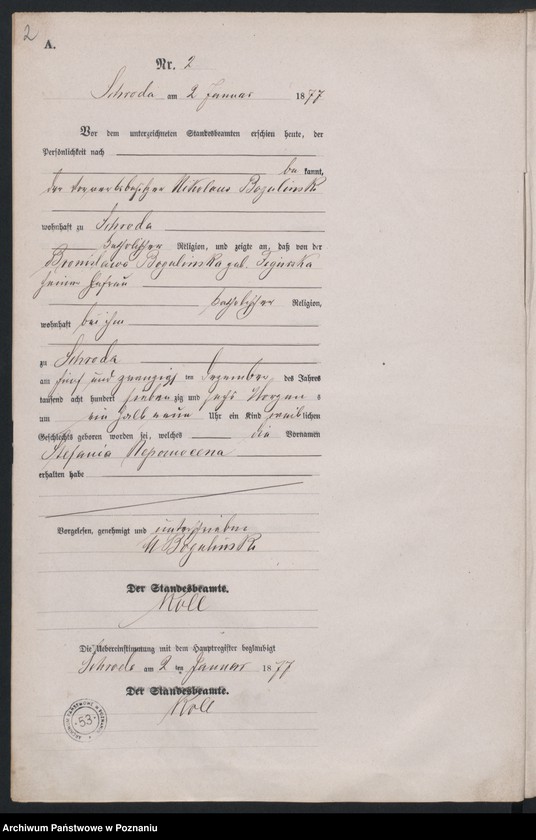 2
A.
Nr. 2
Schroda am 2 Januar 1877
Vor dem unterzeichneten Standesbeamten erschien heute, der
Persönlichkeit nach
bekannt,
der Vorwerksbesitzer Nikolaus Bogulinski
wohnhaft zu Schroda
katholischer Religion, und zeigte an, daß von der
Bronislawa Bogulinska geb.
seiner Ehefrau
katholischer Religion,
wohnhaft bei ihm
zu Schroda
am fünf und zwanzigsten Dezember des Jahres
tausend acht hundert siebenzig und sechs Morgens
um ein halb neun Uhr ein Kind weiblichen
Geschlechts geboren worden sei, welches die Vornamen
Stefania Nepomocena
erhalten habe
Vorgelesen, genehmigt und unterschrieben
N Bogulinski
Der Standesbeamte.
Koll
Die Uebereinstimmung mit dem Hauptregister beglaubigt
Schroda am 2 ten Januar 1877
Der Standesbeamte.
Koll
ARCHIWUM PAŃSTWOWE W POZNANIU
53
Archiwum Państwowe w Poznaniu